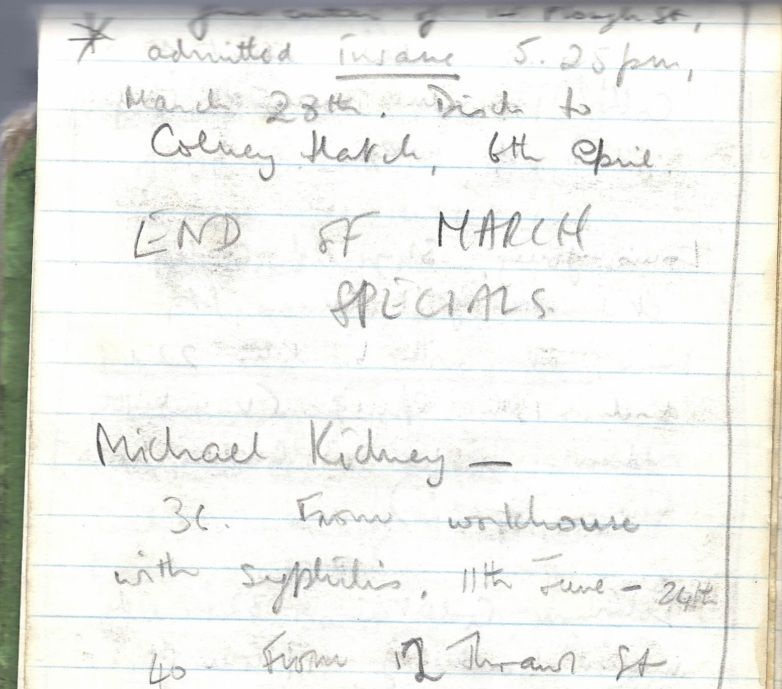 of Plough St,
* admitted insane 5.25pm,
March 28th. Disch to
Colney Hatch, 6th April.
END OF MARCH
SPECIALS
Michael Kidney —
36. From workhouse
with syphilis, 11th June - 24th
40 From 12 Thrawl St